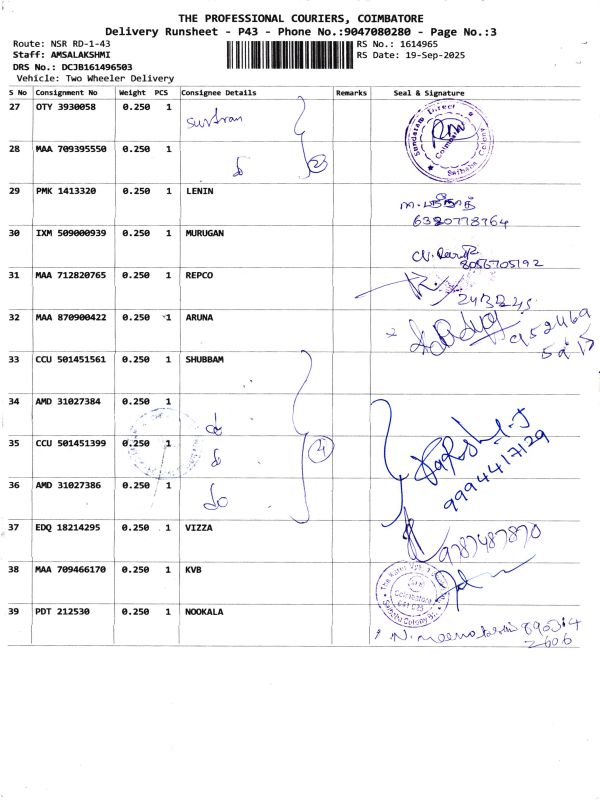 THE PROFESSIONAL COURIERS, COIMBATORE
Delivery Runsheet - P43 - Phone No.:9047080280 - Page No.:3
Route: NSR RD-1-43
RS No.: 1614965
Staff: AMSALAKSHMI
RS Date: 19-Sep-2025
DRS No.: DCJB161496503
Vehicle: Two Wheeler Delivery
S No Consignment No Weight PCS Consignee Details Remarks Seal & Signature
27 OTY 3930058 0.250 1
28 MAA 709395550 0.250 1
2
29 PMK 1413320 0.250 1 LENIN
6380778764
30 IXM 509000939 0.250 1 MURUGAN
8056705192
31 MAA 712820765 0.250 1 REPCO
32 MAA 870900422 0.250 1 ARUNA
33 CCU 501451561 0.250 1 SHUBBAM
34 AMD 31027384 0.250 1
do
35 CCU 501451399 0.250 1
do
4
9994417129
36 AMD 31027386 0.250 1
do
37 EDQ 18214295 0.250 1 VIZZA
9787487870
38 MAA 709466170 0.250 1 KVB
Coimbatore
39 PDT 212530 0.250 1 NOOKALA